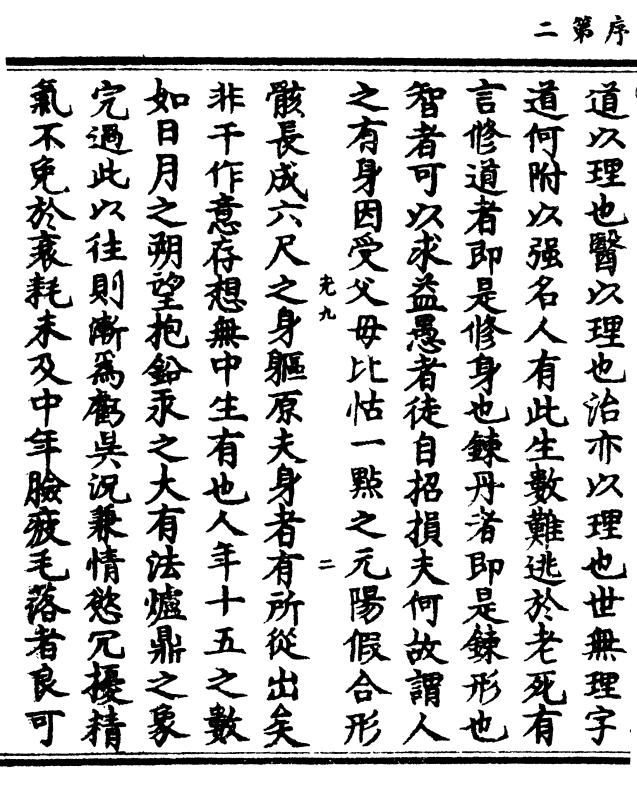 序第二
道以理也醫以理也治亦以理也世無理字
道何附以强名人有此生數難逃於老死有
言修道者即是修身也鍊丹者即是鍊形也
智者可以求益愚者徒自招損夫何故謂人
之有身因受父母比怙一點之元陽假合形
光九 二
骸長成六尺之身軀原夫身者有所從出矣
非干作意存想無中生有也人年十五之數
如日月之朔望抱鉛汞之大有法爐鼎之象
完過此以往則漸爲虧矣況兼情慾冗擾精
氣不免於衰耗未及中年臉皺毛落者良可